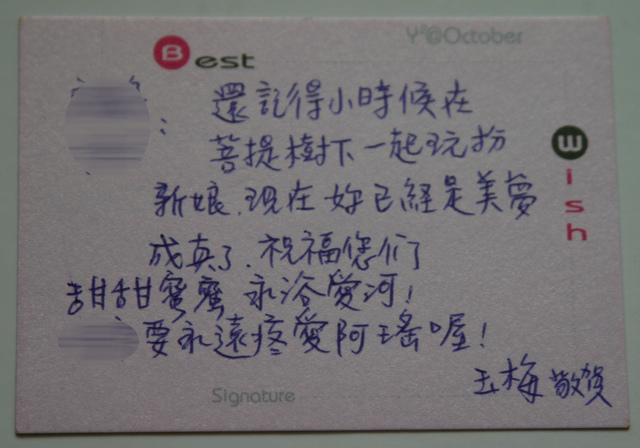 Best
Y²@October
Wish
：還記得小時候在
菩提樹下一起玩扮
新娘.現在妳已經是美夢
成真了.祝福您们
甜甜蜜蜜 永浴愛河!
要永遠疼愛阿瑤喔!
玉梅 敬賀
Signature